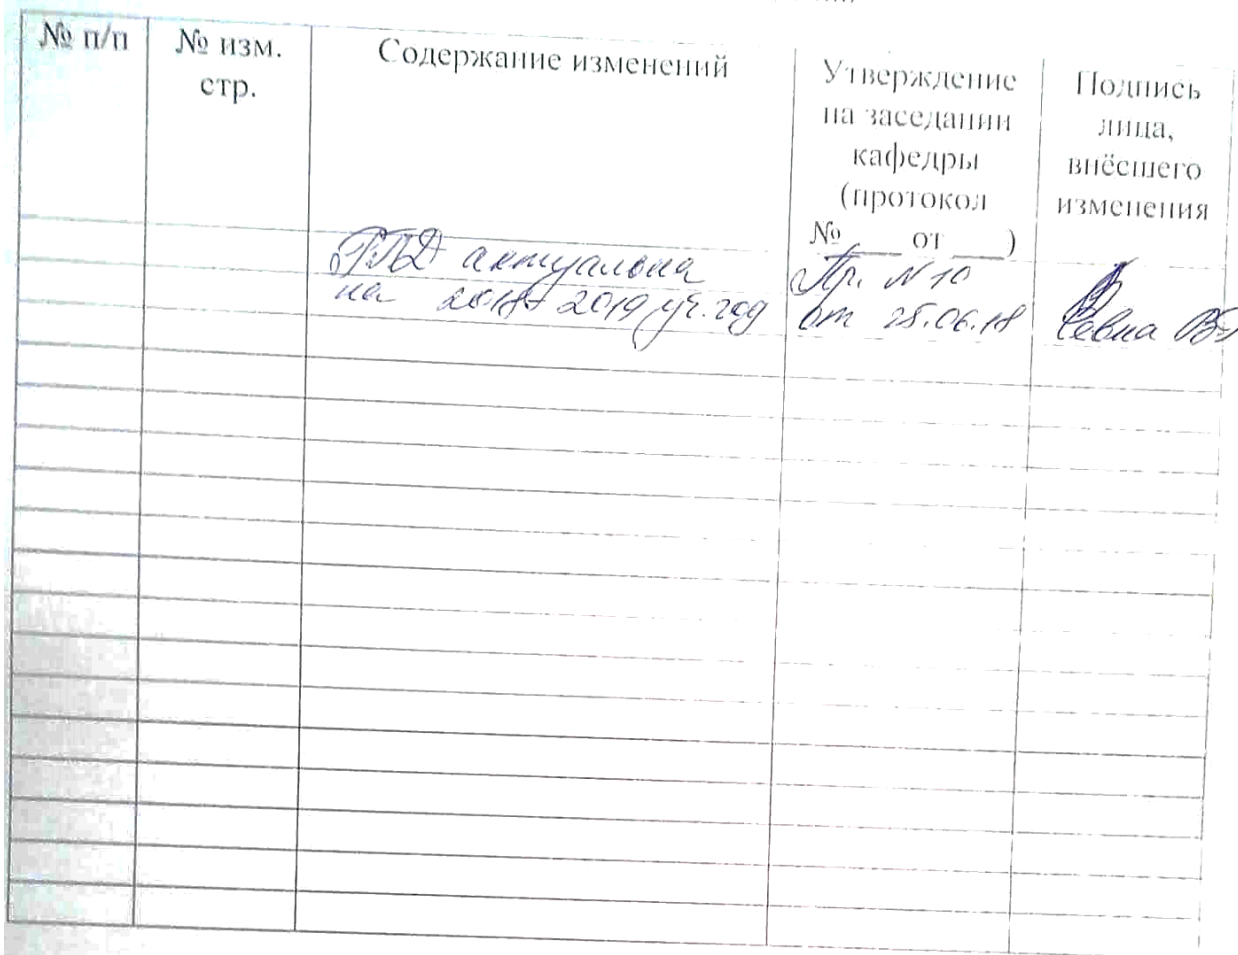 № п/п
№ изм.
стр.
Содержание изменений
Утверждение
на заседании
кафедры
(протокол
№ ____ от ____)
Подпись
лица,
внёсшего
изменения
РПД актуальна
на 2018-2019 уч. год
Пр. N 10
от 25.06.18